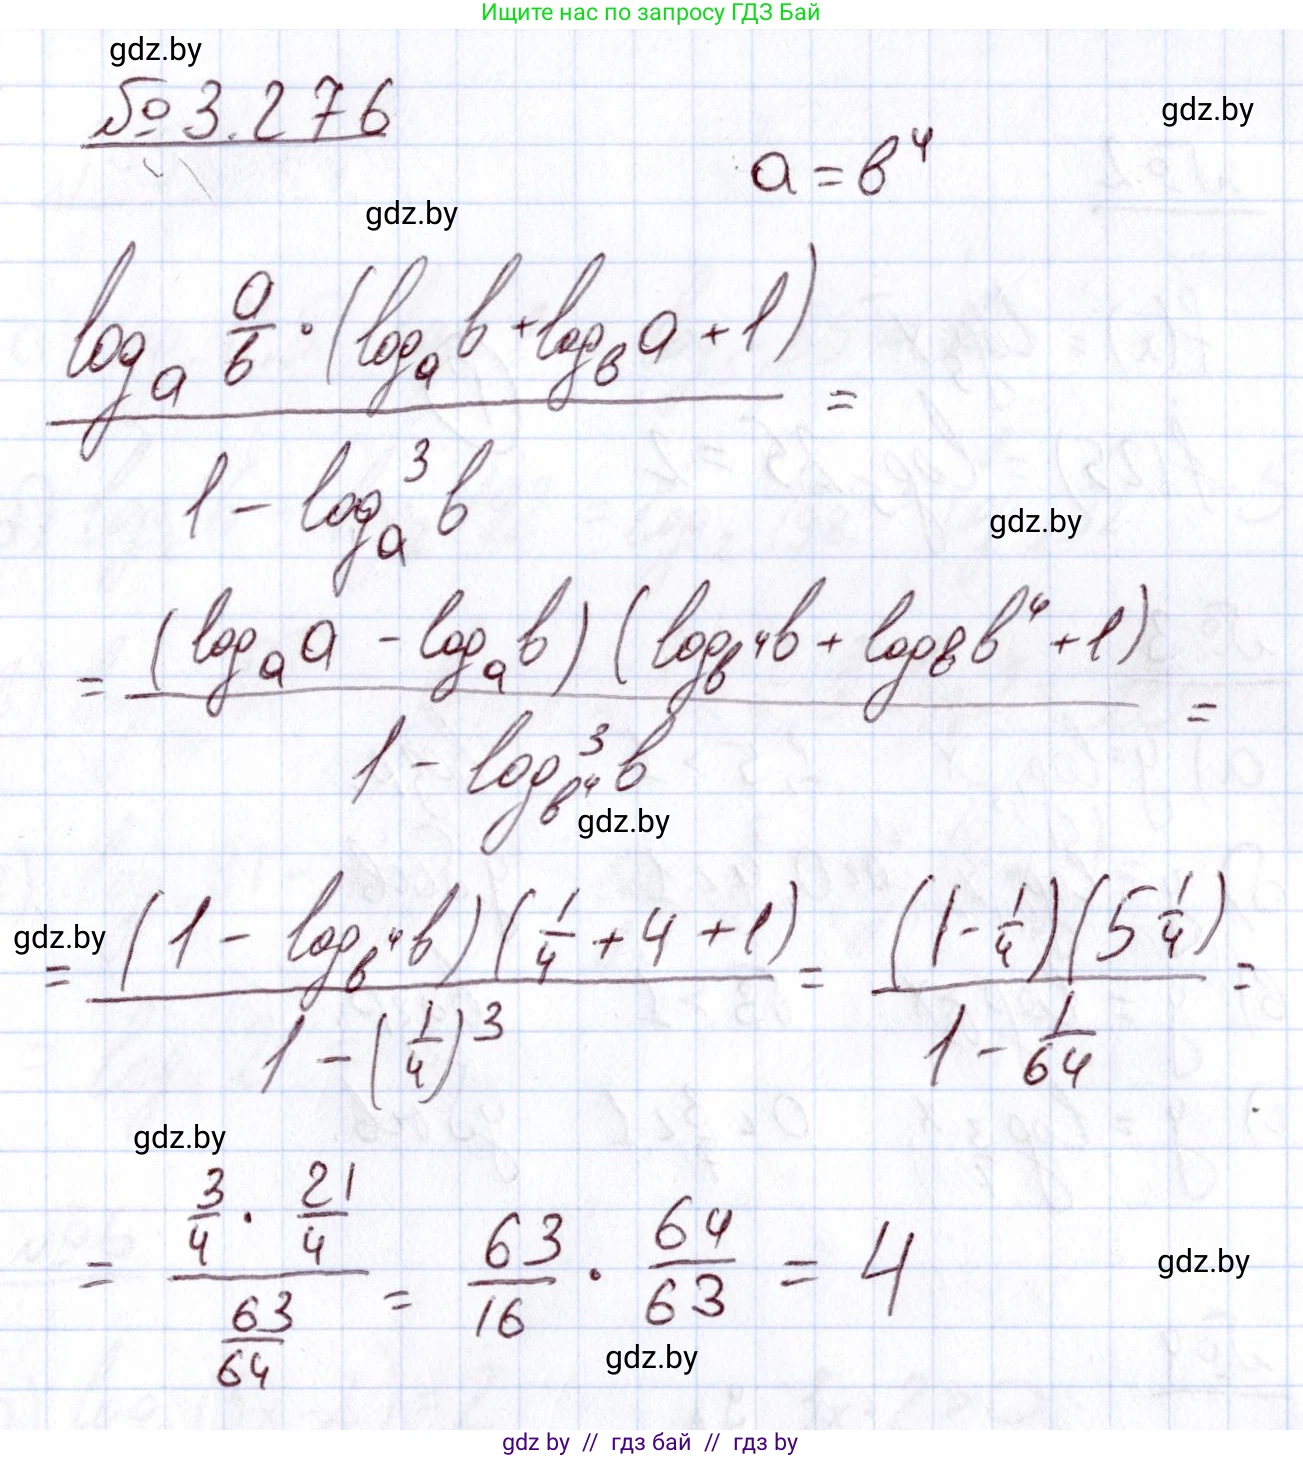 Ищите нас по запросу ГДЗ Бай
gdz.by
№ 3.276
gdz.by
a = b⁴
gdz.by
(logₐ a/b · (logₐ b + log_b a + 1)) / (1 - logₐ³ b) =
gdz.by
= ((logₐ a - logₐ b) (log_{b⁴} b + log_b b⁴ + 1)) / (1 - log³_{b⁴} b) =
gdz.by
gdz.by
= ((1 - log_{b⁴} b) (1/4 + 4 + 1)) / (1 - (1/4)³) = ((1 - 1/4) (5 1/4)) / (1 - 1/64) =
gdz.by
= (3/4 · 21/4) / (63/64) = 63/16 · 64/63 = 4
gdz.by
gdz.by
gdz by // гдз бай // гдз by